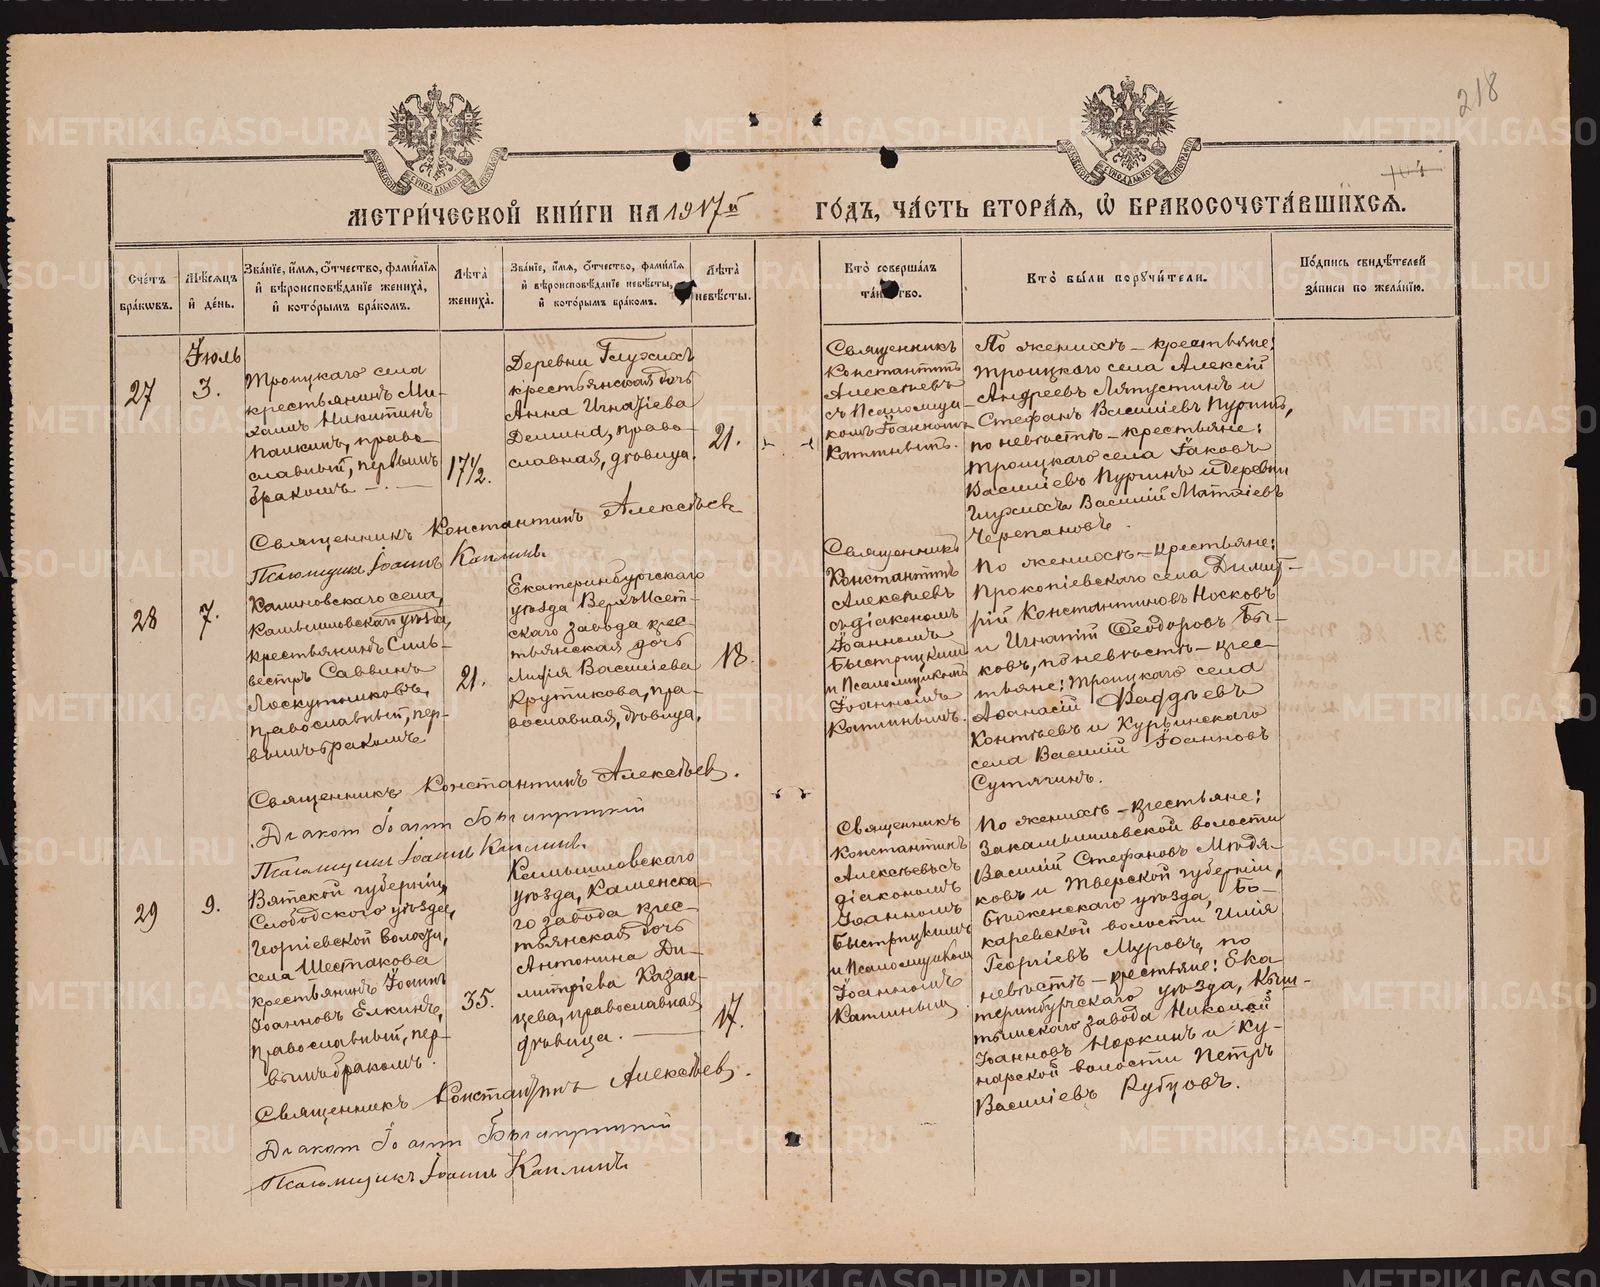 218
104
МЕТРИ́ЧЕСКОЙ КНИ́ГИ НА 1917й ГО́ДЪ, ЧА́СТЬ ВТОРА́Я, Ѡ БРАКОСОЧЕТА́ВШИХСЯ.
Сче́тъ бра́кѡвъ.
Мѣ́сяцъ и де́нь.
Зва́нїе, и́мя, ѻ́тчество, фами́лїя и вѣроисповѣ́данїе жениха̀, и кото́рымъ бра́комъ.
Лѣ́та жениха̀.
Зва́нїе, и́мя, ѻ́тчество, фами́лїя и вѣроисповѣ́данїе невѣ́сты, и кото́рымъ бра́комъ.
Лѣ́та невѣ́сты.
Кто̀ соверша́лъ та́инство.
Кто̀ бы́ли поручи́тели.
По́дпись свидѣ́телей за́писи по жела́нїю.
27
Іюль
3.
Троицкаго села
крестьянинъ Ми-
хаилъ Никитинъ
Паикинъ, право-
славный, первымъ
бракомъ
17½.
Деревни Глухихъ
крестьянская дочь
Анна Игнатіева
Демина, право-
славная, дѣвица.
21.
Священникъ
Константинъ
Алексѣевъ
съ Псаломщи-
комъ Іоанномъ
Каплинымъ.
По женихѣ – крестьяне:
Троицкаго села Алексій
Андреевъ Ляпустинъ и
Стефанъ Василіевъ Пургинъ,
по невѣстѣ – крестьяне:
Троицкаго села Іаковъ
Василіевъ Пургинъ и деревни
Глухихъ Василій Матѳіевъ
Черепановъ.
Священникъ Константинъ Алексѣевъ
Псаломщикъ Іоаннъ Каплинъ.
28
7.
Калиновскаго села,
Камышловскаго уѣзда,
крестьянинъ Силь-
вестръ Саввинъ
Лоскутниковъ,
православный, пер-
вымъ бракомъ
21.
Екатеринбургскаго
уѣзда Верхъ-Исет-
скаго завода крес-
тьянская дочь
Лидія Василіева
Крутикова, пра-
вославная, дѣвица.
18.
Священникъ
Константинъ
Алексѣевъ
съ діакономъ
Іоанномъ
Быстрицкимъ
и Псаломщикомъ
Іоанномъ
Каплинымъ.
По женихѣ – крестьяне:
Прокопіевскаго села Димит-
рій Константиновъ Носковъ
и Игнатій Ѳеодоровъ Бы-
ковъ, по невѣстѣ – крес-
тьяне: Троицкаго села
Аѳанасій Фаддѣевъ
Контѣевъ и Курьинскаго
села Василій Іоанновъ
Сутягинъ.
Священникъ Константинъ Алексѣевъ.
Діаконъ Іоаннъ Быстрицкій
Псаломщикъ Іоаннъ Каплинъ.
29
9.
Вятской губерніи,
Слободского уѣзда,
Георгіевской волости,
села Шестакова
крестьянинъ Іоаннъ
Іоанновъ Елкинъ,
православный, пер-
вымъ бракомъ.
35.
Камышловскаго
уѣзда, Каменска-
го завода крес-
тьянская дочь
Антонина Ди-
митріева Казан-
цева, православная
дѣвица.
17.
Священникъ
Константинъ
Алексѣевъ съ
діакономъ
Іоанномъ
Быстрицкимъ
и Псаломщикомъ
Іоанномъ
Каплинымъ.
По женихѣ – крестьяне:
Закамышловской волости
Василій Стефановъ Мидя-
ковъ и Тверской губерніи,
уѣзда, Бо-
каревской волости Илія
Георгіевъ Муровъ, по
невѣстѣ – крестьяне: Ека-
теринбургскаго уѣзда, Кыш-
тымскаго завода Николай
Іоанновъ Норкинъ и Ку-
нарской волости Петръ
Василіевъ Рубцовъ.
Священникъ Константинъ Алексѣевъ.
Діаконъ Іоаннъ Быстрицкій
Псаломщикъ Іоаннъ Каплинъ.
METRIKI.GASO-URAL.RU